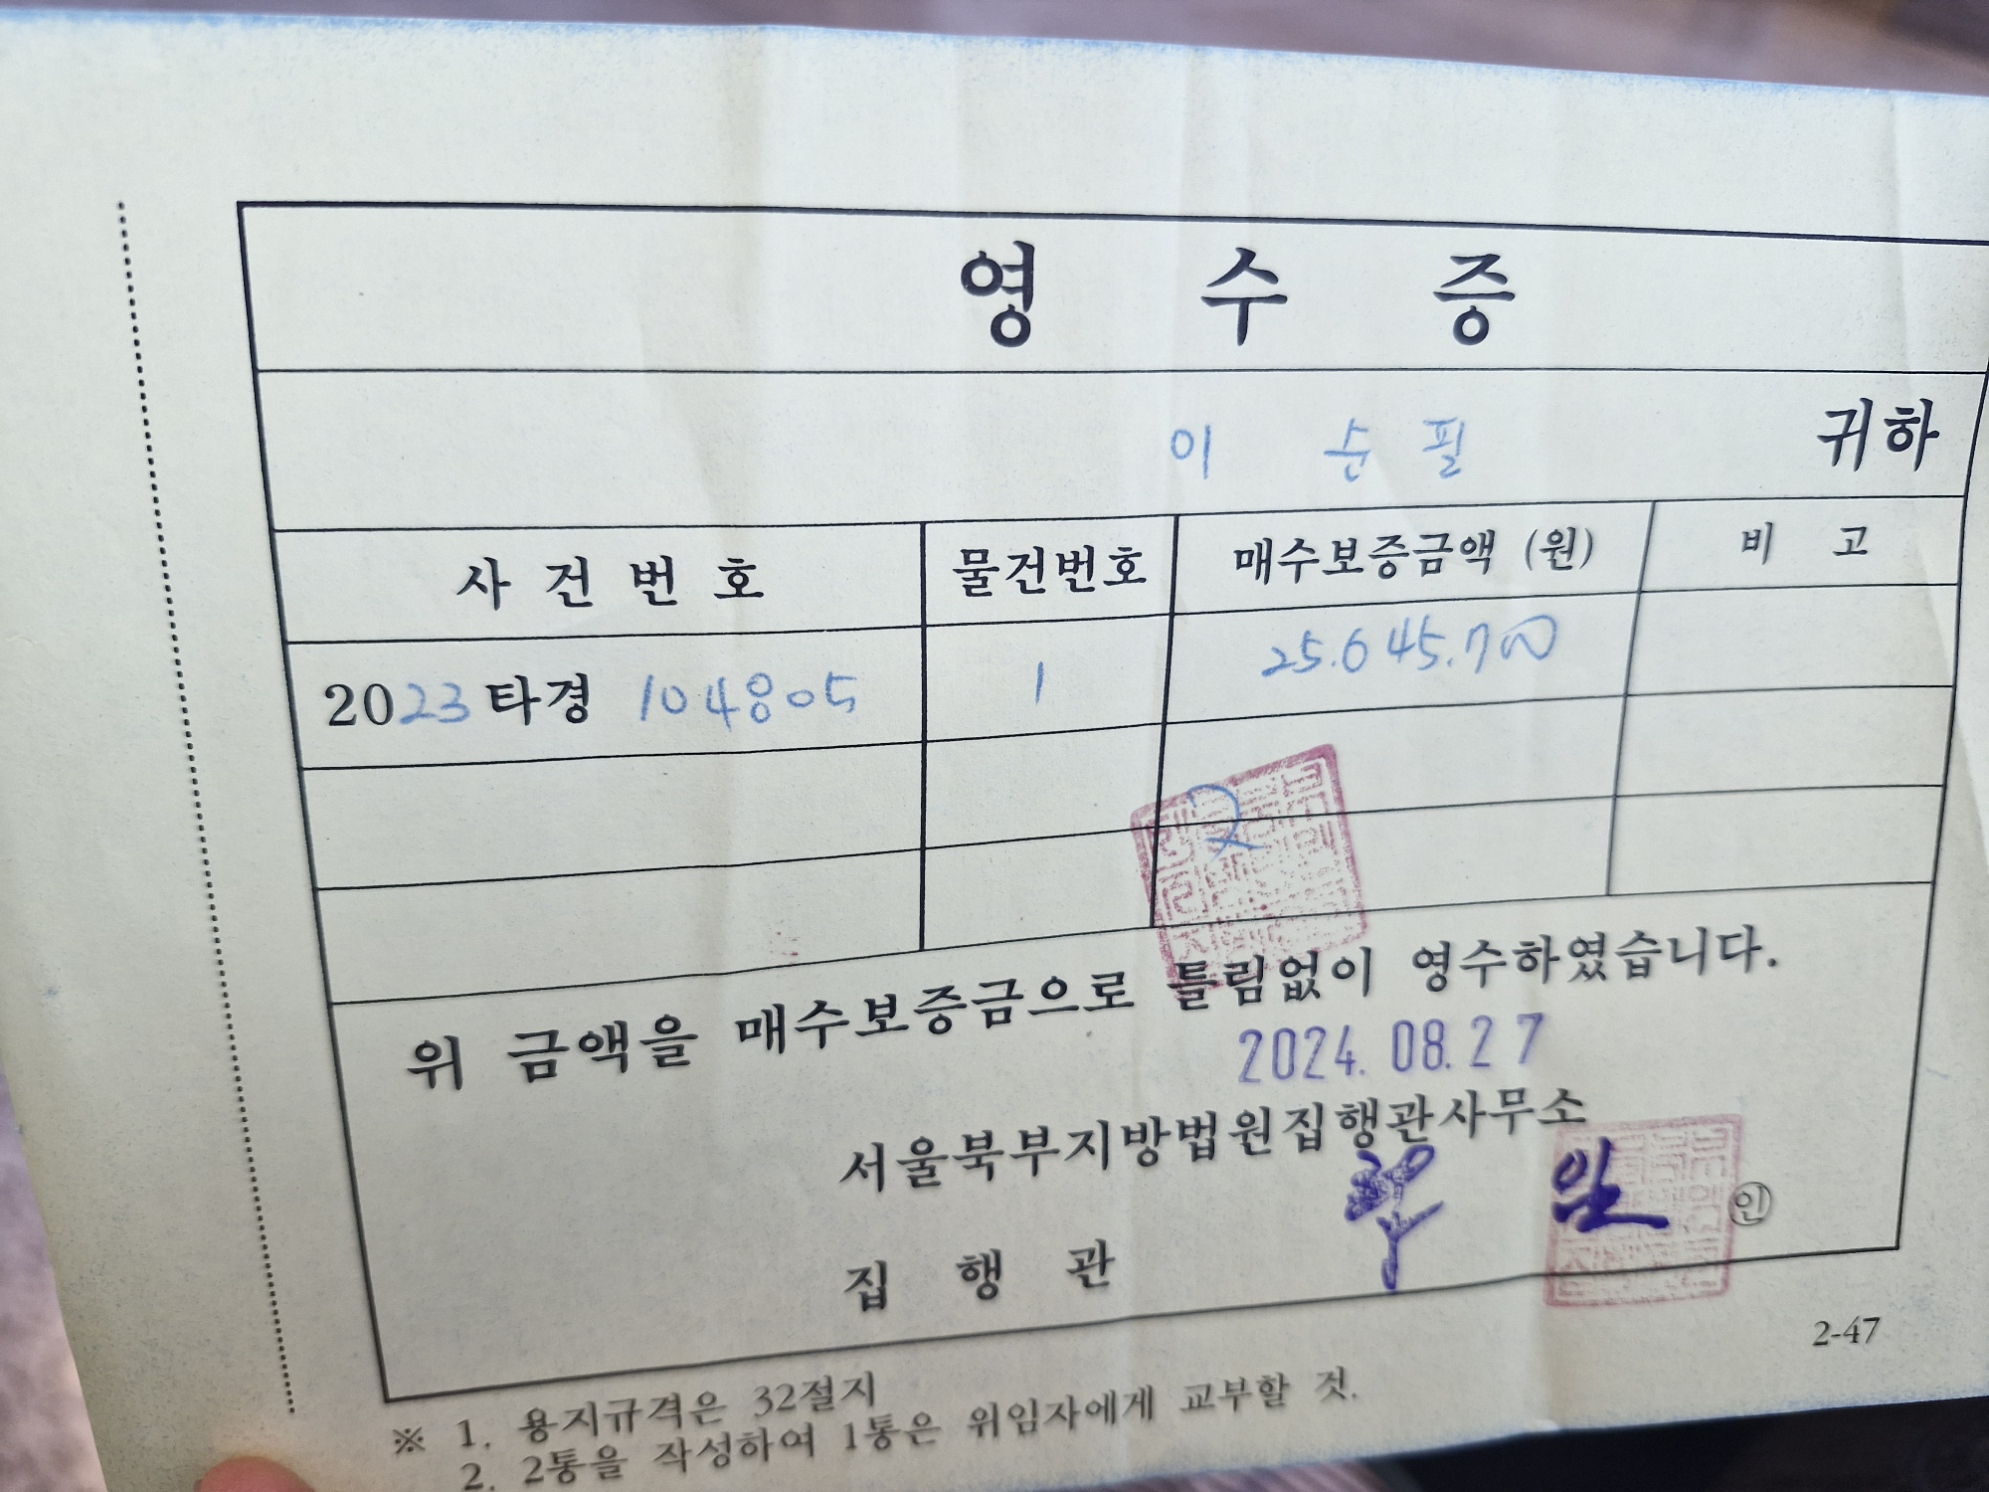 영 수 증
이 순 필 귀하
사 건 번 호 물건번호 매수보증금액 (원) 비 고
2023 타경 104805 1 25.645.700
위 금액을 매수보증금으로 틀림없이 영수하였습니다.
2024. 08. 27
서울북부지방법원집행관사무소
집 행 관 인
2-47
※ 1. 용지규격은 32절지
2. 2통을 작성하여 1통은 위임자에게 교부할 것.